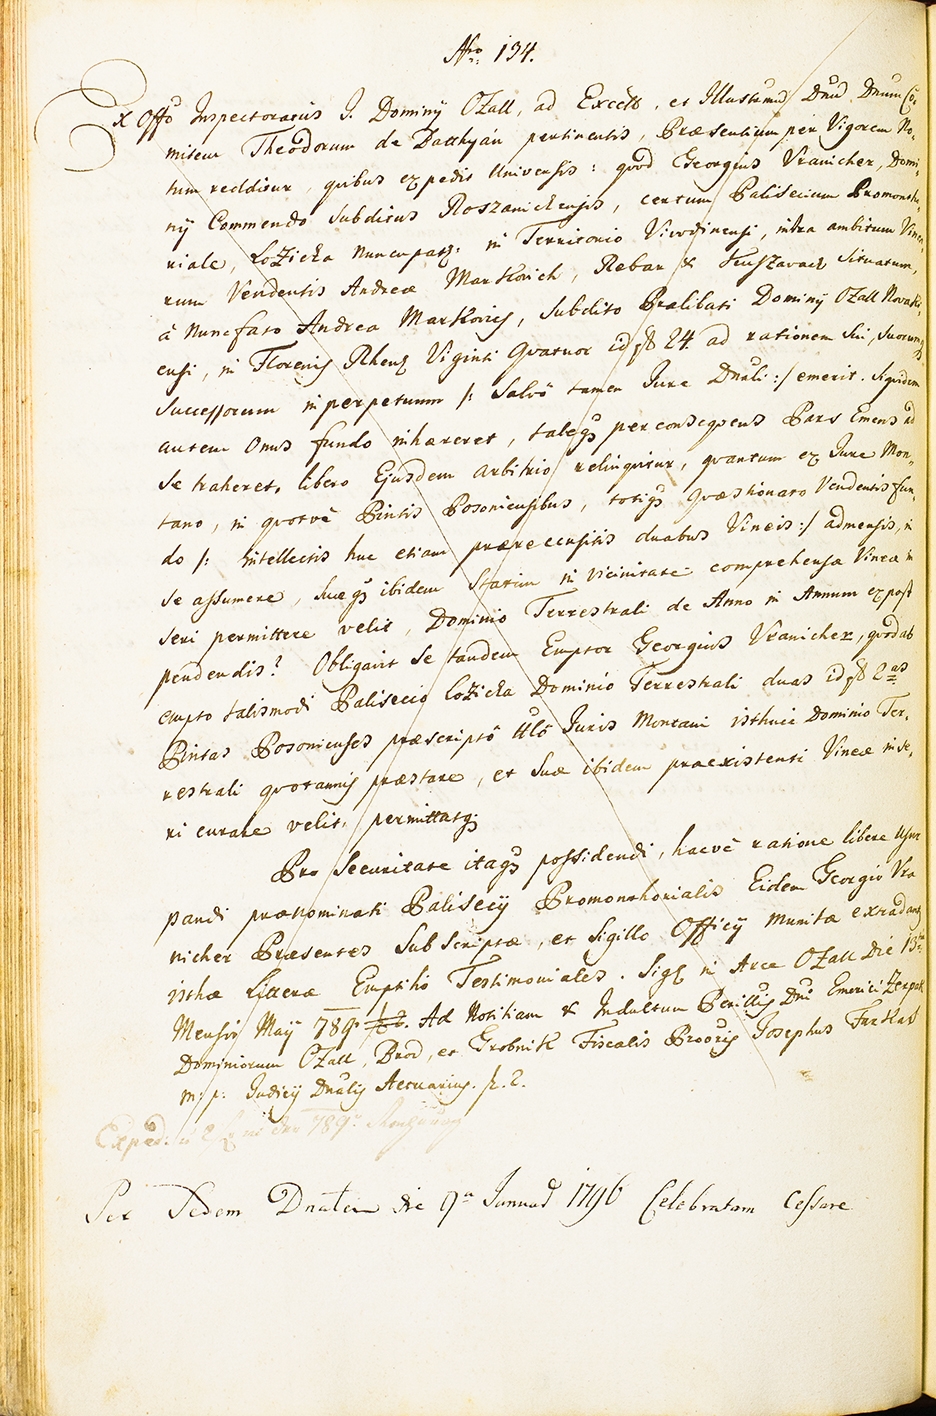 Nro 134.
Ex Offo Inspectoratus I. Dominÿ Ozall, ad Excellmū, et Illustrmū Dnūm Dnūm Co„
mitem Theodorum de Batthyán pertinentis, Præsentium per Vigorem No„
tum redditur, quibus expedit Universis: quod Georgius Vranicher, Domi„
nÿ Commendo Subditus Roszanichensis, certum Palisecium Promontho„
riale, Lozicka nuncupatū: in Territorio Vivodinensi, intra ambitum Vinea„
rum Vendentis Andreæ Markovich, Rebar & Situatum,
à nuncfato Andrea Markovich, Subdito Prælibati Dominÿ Ozall Novak„
ensi, in Florenis Rhens Viginti Quatuor id est 24. ad rationem Sui, Suorumq̄
Successorum in perpetuum /: Salvô tamen Jure Dnāli :/ emerit. Siquidem
autem Onus fundo inhæreret, taleq̄ per consequens Pars Emens ad
Se traheret, libero Ejusdem arbitrio relinquitur, quantum ex Jure Mon„
tano, in quotvè Pintis Posoniensibus, totiq̄ Quæstionato Vendentis fun„
do /: intellectis huc etiam præreccensitis duabus Vineis :/ admensis, in
Se assumere, Suæq̄ ibidem Statim in vicinitate comprehensa Vineæ in
seri permittere velit, Dominio Terrestrali de Anno in Annum expost
pendendis? Obligavit Se tandem Emptor Georgius Vranicher, quod ab
empto talismodi Palisecio Lozicka Dominio Terrestrali duas id est 2as
Pintas Posonienses præscriptô ttlô Juris Montani isthuic Dominio Ter„
restrali quotannis præstare, et Suæ ibidem præexistenti Vineæ inse„
ri curare velit, permittatq̄
Pro Securitate itaq̄ possidendi, hacvè ratione libere Usur
pandi prænominati Palisecÿ Promonthorialis Eidem Georgio Vra
nicher Præsentes Subscriptæ, et Sigillo Officÿ munitæ extradantur
isthæ Litteræ Emptitiô Testimoniales. Sigl in Arce Ozall Die 13
Mensis Maÿ 789. Ad Notitiam & Indultum Perillris Dnī Emerici Zerpak
Dominiorum Ozall, Brod, et Grobnik Fiscalis Proōris Josephus Farkas
m. p. Judicÿ Dnālis Actuarius. L. S.
Exped. 789
Per Sedem Dnalem die 9a Januar 1796 Celebratam Cessare